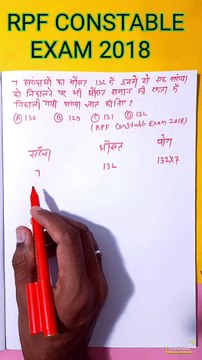 RPF CONSTABLE
EXAM 2018
7 संख्याओं का औसत 132 है उनमें से एक संख्या
को निकालने पर भी औसत समान ही रहता है
निकाली गयी संख्या ज्ञात कीजिए ?
Ⓐ 130 Ⓑ 129 Ⓒ 131 Ⓓ 132
(RPF Constable Exam 2018)
संख्या औसत योग
7 132 132×7